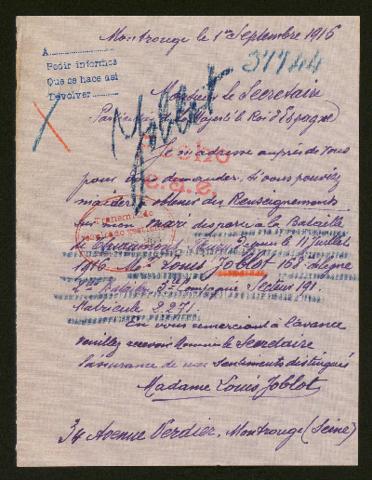 Montrouge le 1er Septembre 1916
A
Pedir informes
Que se hace así
Devolver
31744
Monsieur le Secretaire
Particulier de sa Majesté le Roi d'Espagne
Joblot
Je m'adresse auprès de vous
pour vous demander, si vous pouvez
m'aider à obtenir des Renseignements
sur mon mari disparu à la Bataille
de depuis le 11 Juillet
1916 Mr Louis Joblot 168e Ligne
3e Compagnie Secteur 191.
Matricule
En vous remerciant à l'avance
veuillez recevoir Monsieur le Secretaire
l'assurance de mes sentiments distingués
Madame Louis Joblot
34 Avenue Verdier, Montrouge (Seine)